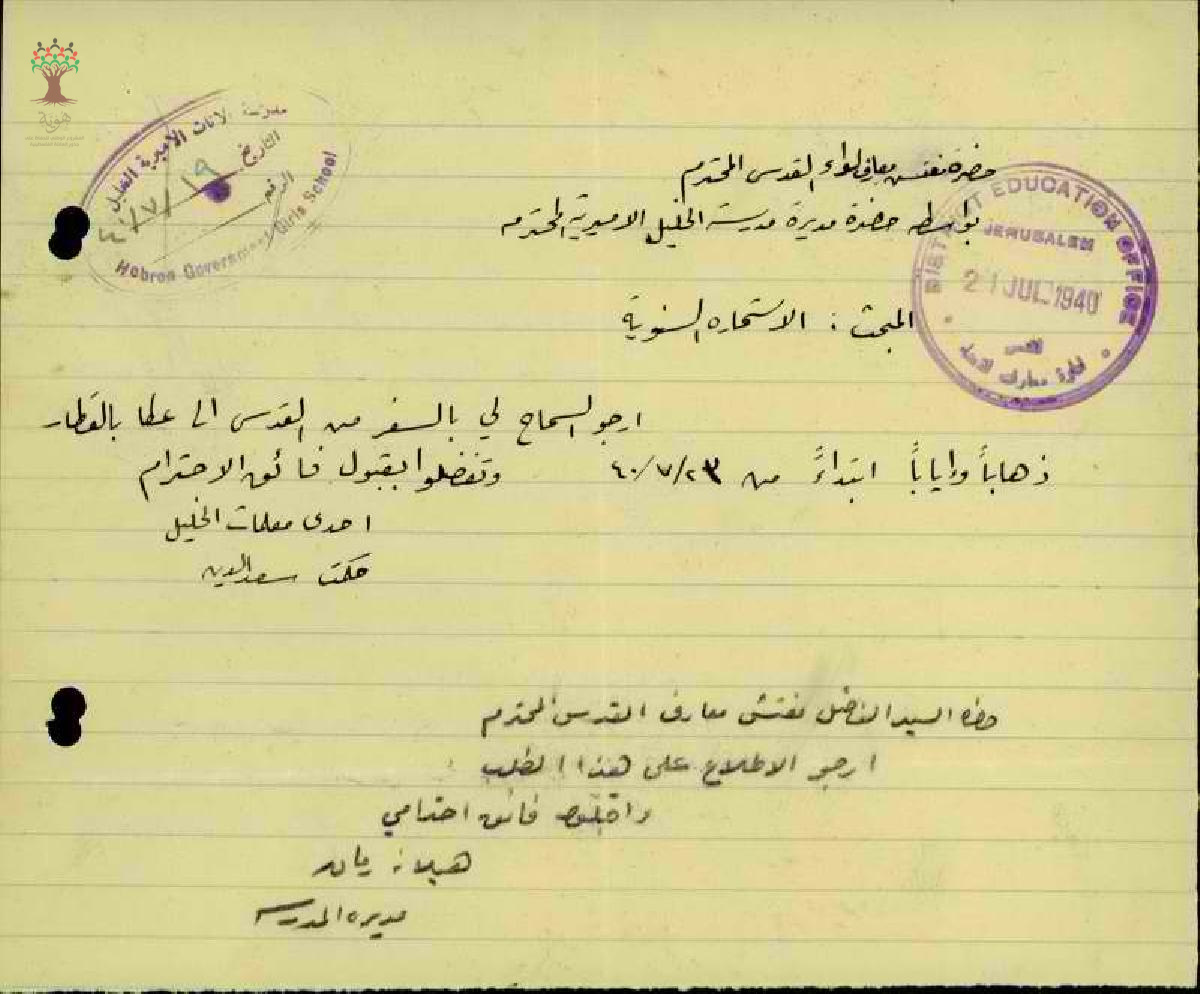 هوية
مدرسة الاناث الأميرية الخليل
التاريخ ١٩/٧/٤٠
الرقم
Hebron Government Girls School
DISTRICT EDUCATION OFFICE
JERUSALEM
21 JUL 1940
القدس
ادارة معارف
حضرة مفتش معارف لواء القدس المحترم
بواسطة حضرة مديرة مدرسة الخليل الاميرية المحترمه
المبحث : الاستماره السنوية
ارجو السماح لي بالسفر من القدس الى عكا بالقطار
ذهاباً وإياباً ابتداءً من ٤٠/٧/٢٣ وتفضلوا بقبول فائق الاحترام
احدى معلمات الخليل
حكمت سعد الدين
حضرة السيد الفاضل مفتش معارف القدس المحترم
ارجو الاطلاع على هذا الطلب
واقبلوا فائق احترامي
هيلانه
مديره المدرسه